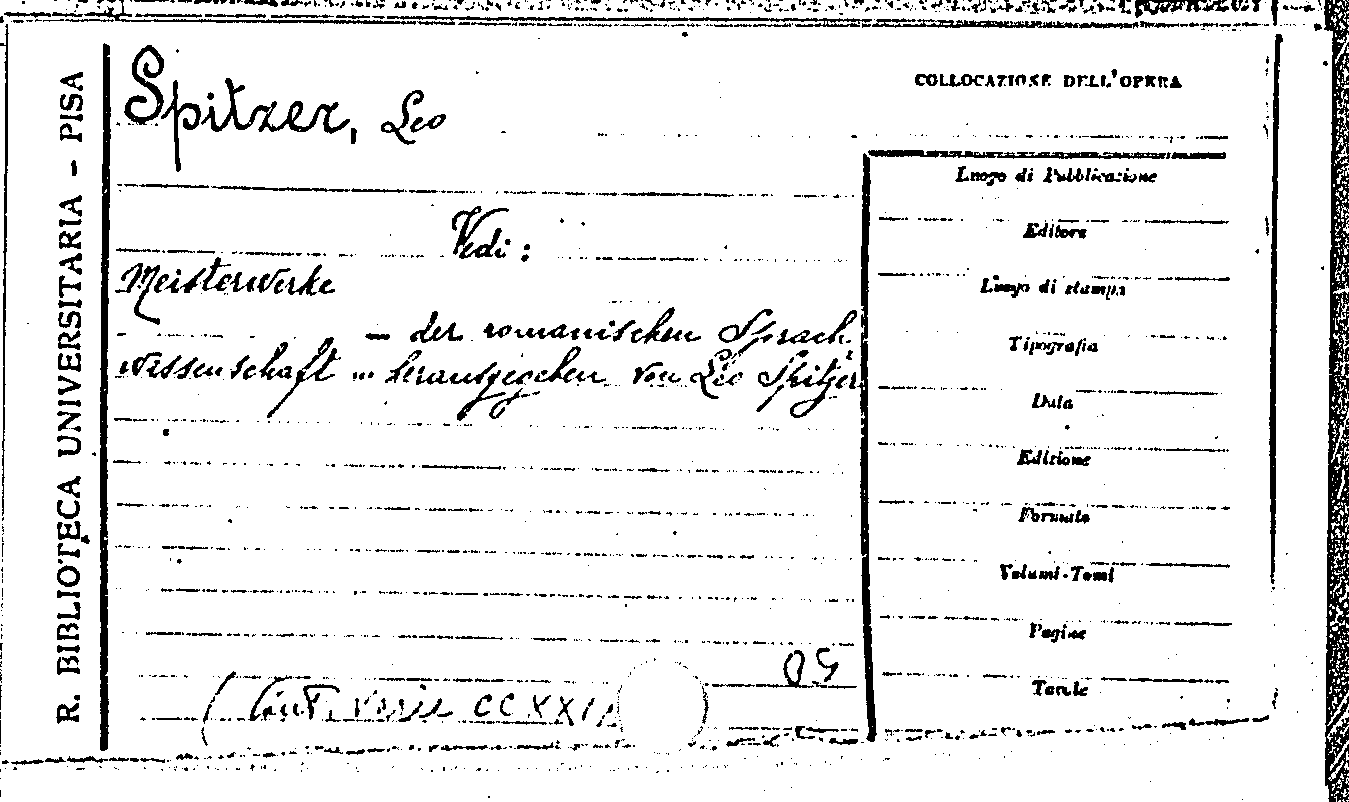 R. BIBLIOTECA UNIVERSITARIA - PISA
Spitzer, Leo
Vedi:
Meisterwerke
— der romanischen Sprach
wissenschaft ... herausgegeben von Leo Spitzer
varie CCXXI
COLLOCAZIONE DELL'OPERA
Luogo di Pubblicazione
Editore
Luogo di stampa
Tipografia
Data
Edizione
Formato
Volumi-Tomi
Pagine
Tavole